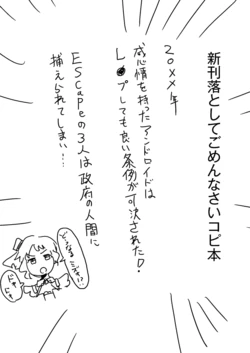 新刊落としてごめんなさいコピ本
20××年
感情を持ったアンドロイドは
L●プしても良い条例が可決された!
ESCapeの3人は政府の人間に
捕えられてしまい…
どうなる
ミライ!?